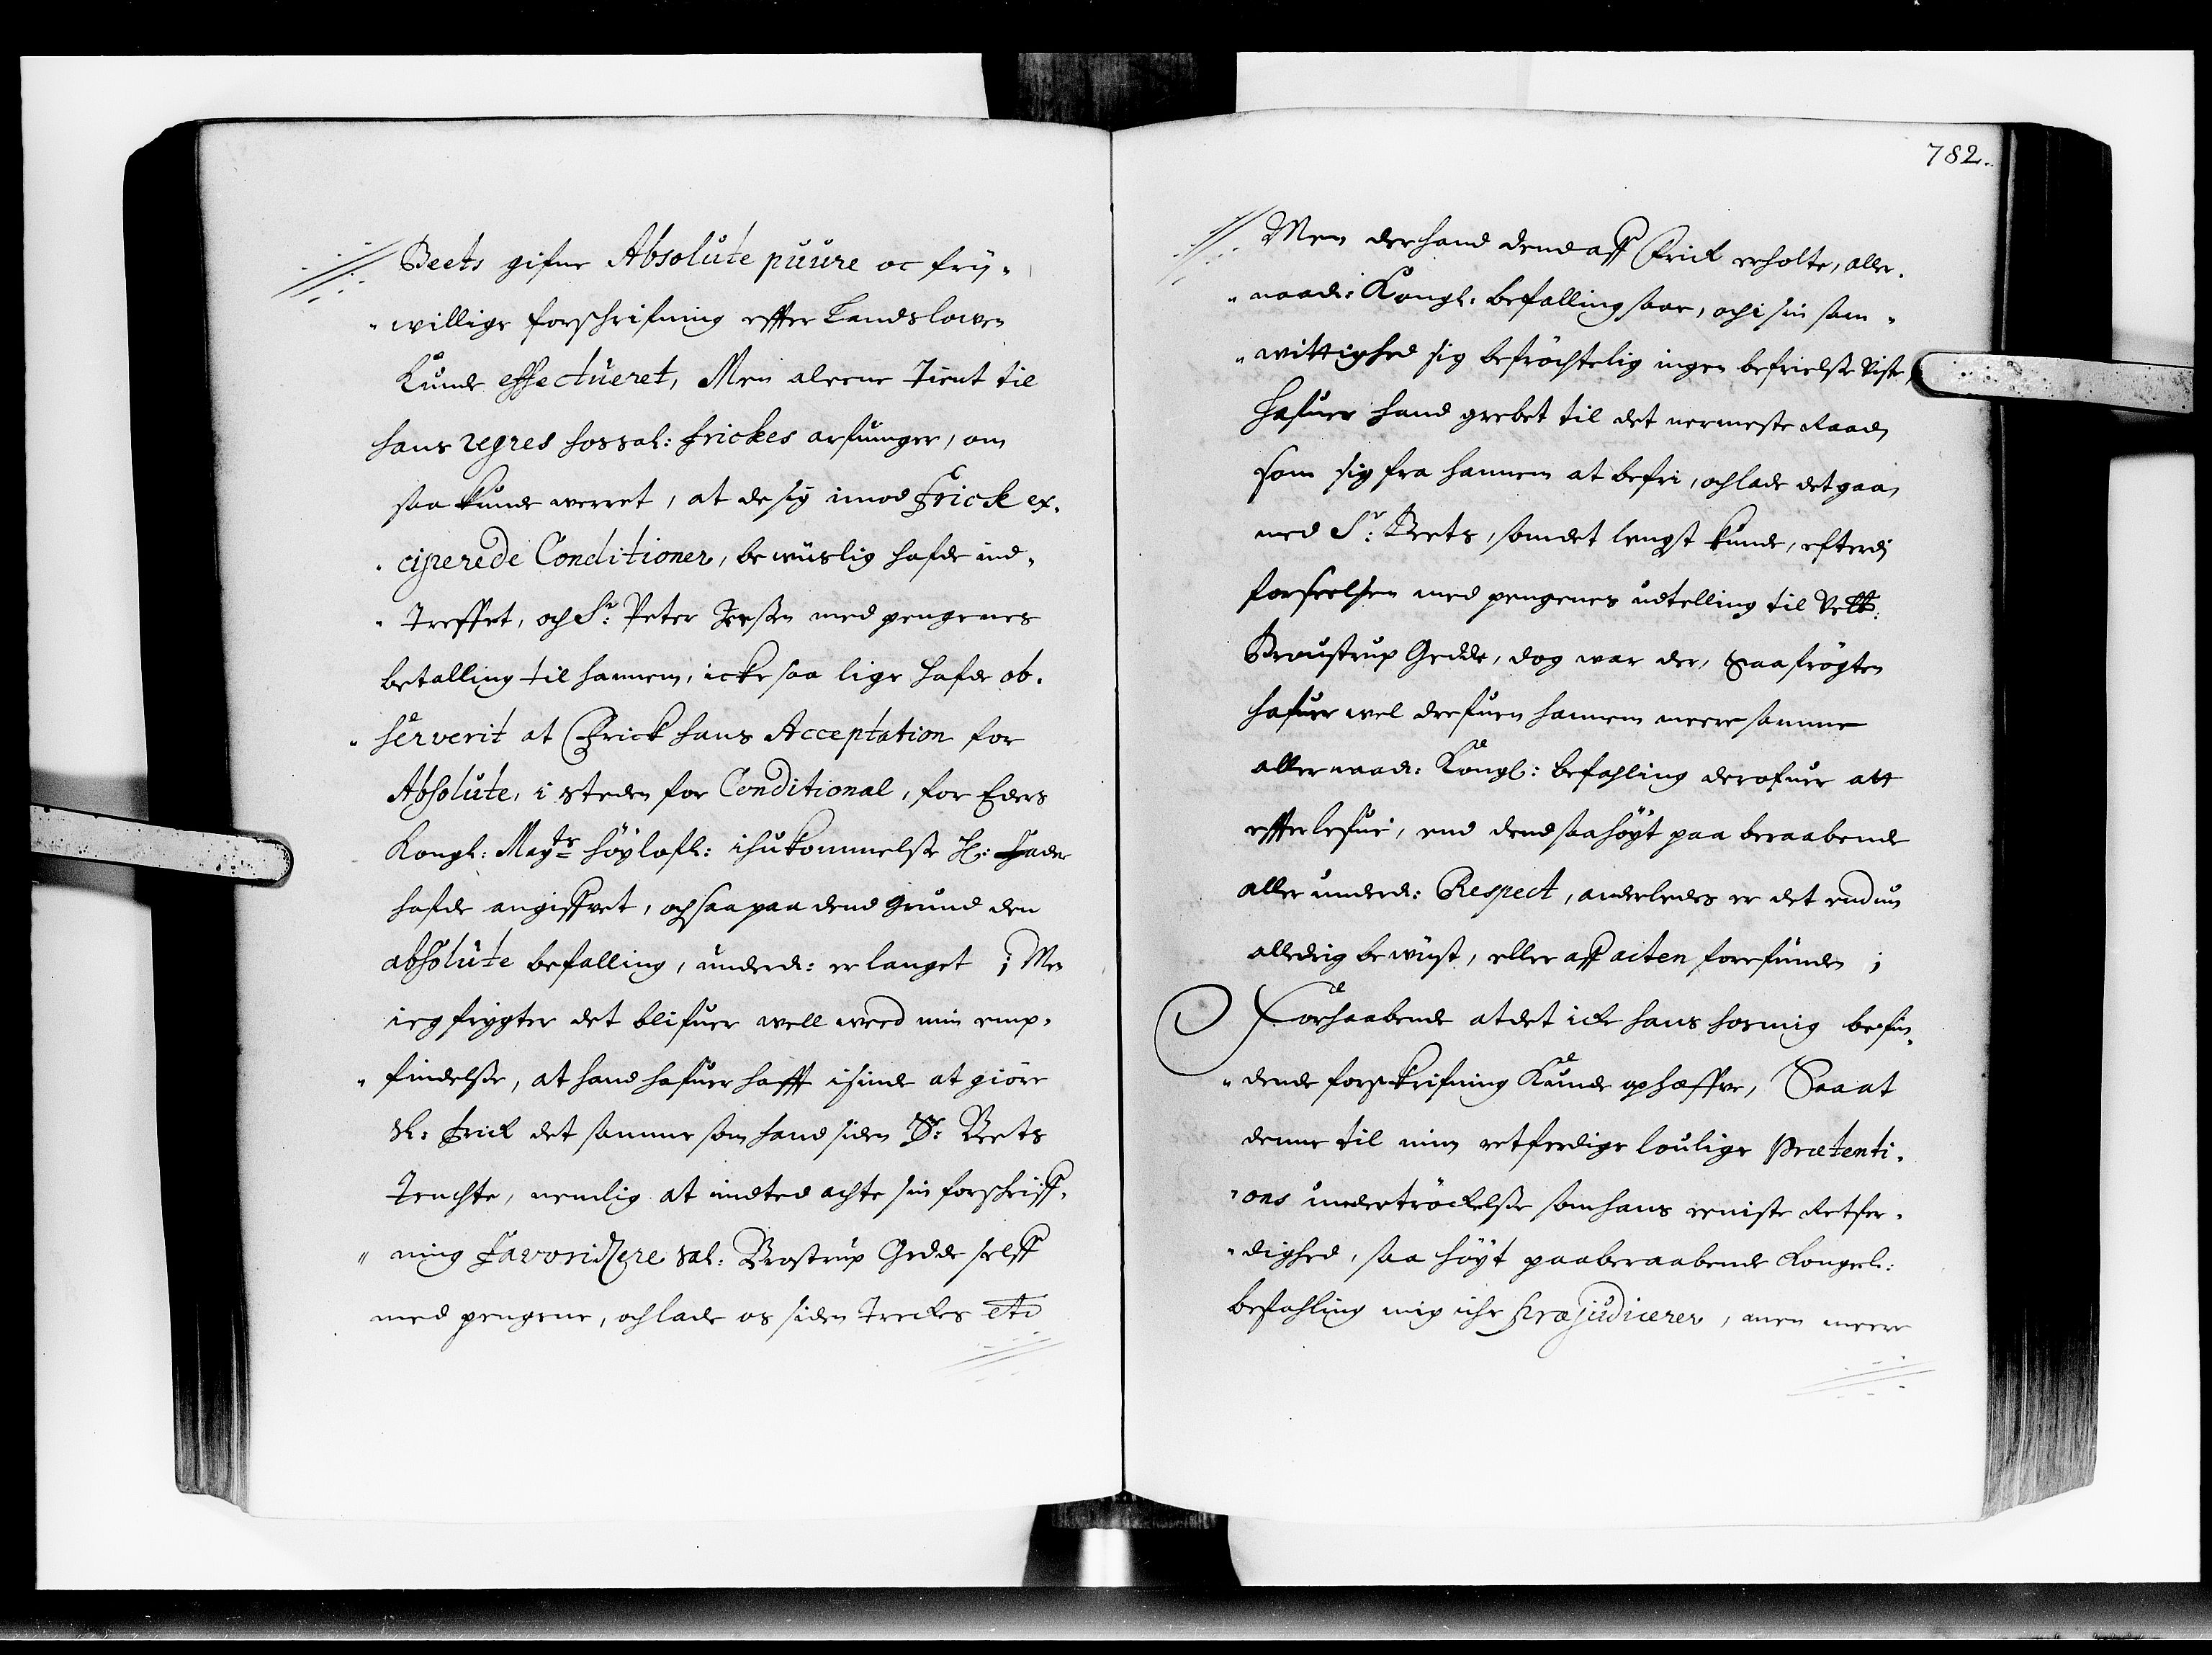 Beets gifne Absolute puure oc frÿ-
willige forschrifning effter Landslowen
Kunde effectueret, Men aleene Tient til
hans regres hos sal: Frickes arfuinger, om
saa kunde werret, at de sig imod Frick ex-
ciperede Conditioner, bewüslig hafde ind-
Treffet, och Sr: Peter Jessen med pengenes
betalling til hannem, icke saa lige hafde ob-
serverit at Frick hans Acceptation for
Absolute, i steden for Conditional, for Eders
Kongl: Mayts höylofl: ihukommelse H: Fader
hafde angiffvet, och saa paa dend Grund den
absolute befalling, underd: erlanget ; Men
ieg frygter det blifuer well weed min emp-
findelse, at hand hafuer hafft isinde at giöre
Sl: Frick det samme som hand siden Sr: Beets
Tenchte, nemlig at indted achte sin forschriff-
ning Favoridzere Sal: Brostrup Gedde selff
med pengene, och lade os siden Treckes etc
782.
Men der hand dend aff Frick erholte, aller-
naadi: Kongl: befalling saae, och i sin sam-
wittighed sig befröchtelig ingen befrielse viste,
Hafuer hand grebet til det nermeste Raad,
som sig fra hannem at befri, och lade det gaa,
med Sr: Beets, som det lengst kunde, efterdj
forseelsen med pengenes udtelling til
Broustrup Gedde, dog war der, Saa frögten
hafuer wel drefuen hannem meere samme
allernaad: Kongl: befahling derofuer att
effterlefue, end dend saa höyt paa beraabende
aller underd: Respect, anderledes er det endnu
alledrig bewüst, eller aff acten forefunden ;
Forhaabende at det icke hans hos mig befin-
dende forskrifning Kunde ophæffve, Saa at
denne til min retferdige loulige Prætenti-
ons undertröckelse som hans eeniste Retfer-
dighed, saa höyt paaberaabende Kongel:
befahling mig iche præjudicerer, men meere